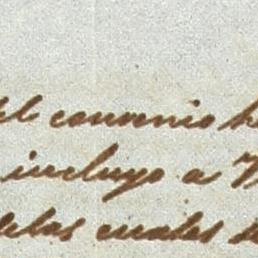 del convenio h
incluyo a V
delas cuales s